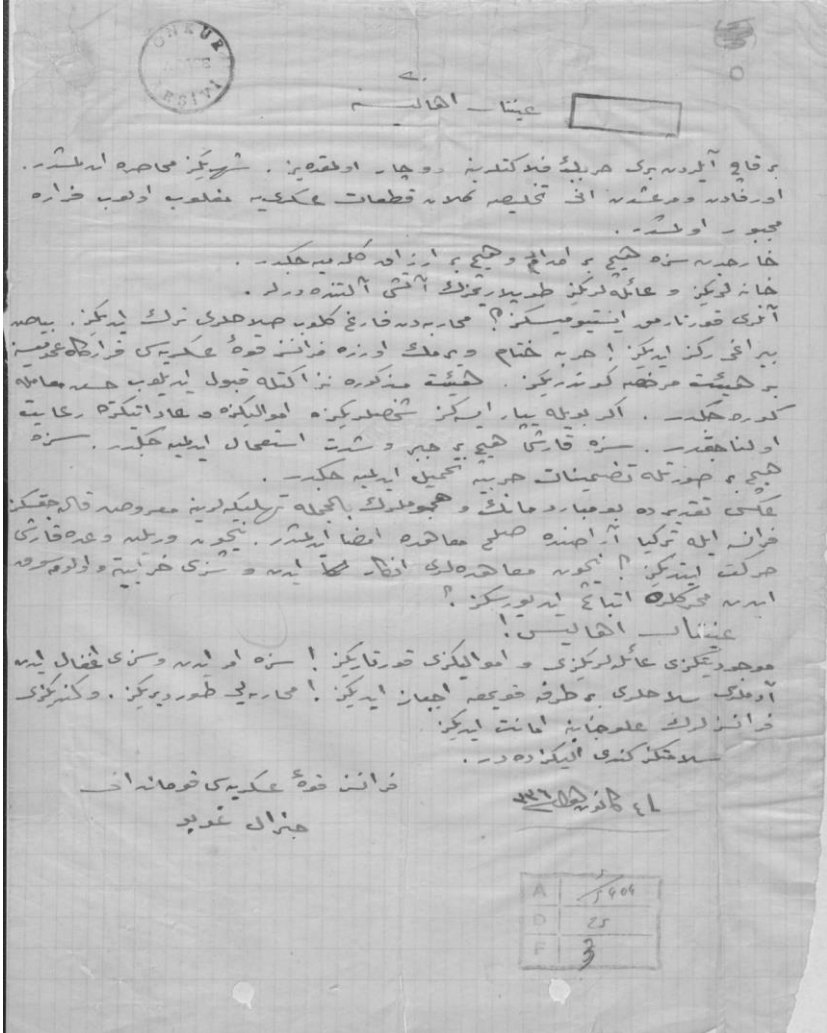 عينتاب اهاليسنه
بر قاچ آيلردن برى حربك فلاكتلرينه دوچار اولمقده‌يز . شهريكز محاصره ايدلمشدر .
اورفادن و مرعشدن انى تخليصه كلان قطعات عسكريه مغلوب اولوب فراره
مجبور اولمشدر .
خارجدن سزه هيچ بر امداد و هيچ بر ارزاق كلميه جكدر .
خانه لريكز و عائله لريكز طوپلاريمزك آتشى آلتنده درلر .
آنلرى قورتارمق ايستيورميسكز ؟ محاربه دن فارغ كلوب سلاحلرى ترك ايديكز . بياض
بيراغى ركز ايديكز ! حربه ختام ويرمك اوزره فرانسز قوۀ عسكريه سى قراركاه عموميسنه
بر هيئت مرخصه كوندريكز . هيئت مذكوره نزاكتله قبول ايديلوب حسن معامله
كوره جكدر . اكر بويله ياپارايسه كز شخصلريكزه اموالكزه و عاداتكزه رعايت
اولناجقدر . سزه قارشى هيچ بر جبر و شدت استعمال ايدلميه جكدر . سزه
هيچ بر صورتله تضمينات حربيه تحميل ايدلميه جكدر .
عكسى تقديرده بومباردمانك و هجوملرك بالجمله تهلكه لرينه معروض قاله جقسكز
فرانسه ايله تركيا آراسنده صلح معاهده امضا ايدلمشدر . نيچون ويريلن وعده قارشى
حركت ايتديكز ؟ نيچون معاهده لرى انكار ايدن و سزى خرابيه و اولومه سوق
ايدن محركلره اتباع ايديورسكز ؟
عينتاب اهاليسى !
موجوديتكزى عائله لريكزى و اموالكزى قورتاريكز ! سزه امر ايدن و سزى اغفال ايدن
آدملرى سلاحلرى بر طرفه قويمغه اجبار ايديكز ! محاربه يى طورديريكز . و كنديكزى
فرانسزلرك علوجنابنه امانت ايديكز
سلامتكز كندى اليكزده در .
فرانسز قوۀ عسكريه سى قوماندانى
كانون اول ٣٣٦
جنرال غوبو
A
D 25
F 3